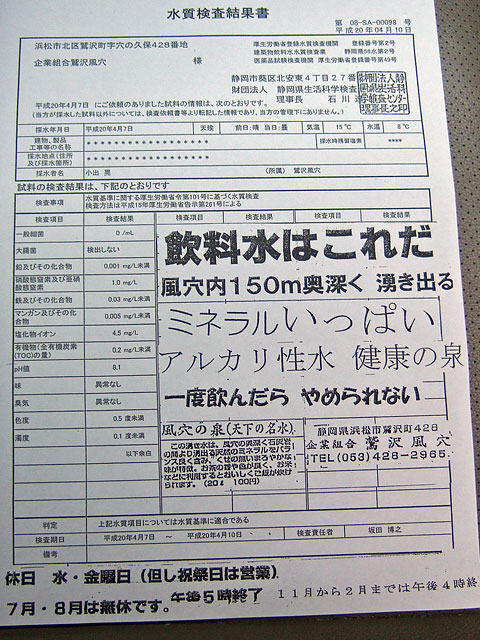 水質検査結果書
第 08-SA-00098 号
平成20年04月10日
浜松市北区鷲沢町字穴の久保428番地
企業組合鷲沢風穴 様
厚生労働省登録水質検査機関 登録番号第2号
建築物飲料水水質検査業 静岡県56水第2号
医薬品試験検査機関 登録番号第49号
静岡市葵区北安東4丁目27番
財団法人 静岡県生活科学検査
理事長 石川
平成20年4月7日 にご依頼のありました試料の情報は、次のとおりです。
(当方が採水した試料以外については、検査依頼書等より転記した情報であり、当方の管理下にありません。)
採水年月日 平成20年4月7日 天候 前日:晴 当日:曇 気温 15℃ 水温 8℃
建物、製品
工事等の名称 ****************** 採水時残留塩素 ****
採水地点(住所
及び採水箇所) ******************
採水者名 小出 晃 (所属) 鷲沢風穴
試料の検査結果は、下記のとおりです
検査事項 水質基準に関する厚生労働省令第101号に基づく水質検査
検査方法は平成15年厚生労働省告示第261号による
検査項目 検査結果 検査項目 検査結果 検査項目 検査結果
一般細菌 0 /mL
大腸菌 検出しない
鉛及びその化合物 0.001 mg/L未満
硝酸態窒素及び亜硝
酸態窒素 1.0 mg/L
鉄及びその化合物 0.03 mg/L未満
マンガン及びその化
合物 0.005 mg/L未満
塩化物イオン 4.5 mg/L
有機物(全有機炭素
(TOC)の量) 0.2 mg/L未満
pH値 8.1
味 異常なし
臭気 異常なし
色度 0.5 度未満
濁度 0.1 度未満
以下余白
飲料水はこれだ
風穴内150m奥深く 湧き出る
ミネラルいっぱい
アルカリ性水 健康の泉
一度飲んだら やめられない
風穴の泉(天下の名水)
この湧き水は、風穴の奥深く石灰岩
の間より湧出る天然のミネラルをバラ
ンス良く含み、くせの無いまろやかな
味が特徴。お茶の香や色が良く、お米
などに利用するとおいしくご飯が炊け
られます。(20ℓ 100円)
静岡県浜松市鷲沢町428
企業組合 鷲沢風穴
TEL(053)428-2965.
判定 上記水質項目については水質基準に適合である
検査期日 平成20年4月7日 ～ 平成20年4月10日 検査責任者 坂田 博之
備考
休日 水・金曜日(但し祝祭日は営業)
7月・8月は無休です。 午後5時終了 11月から2月までは午後4時終